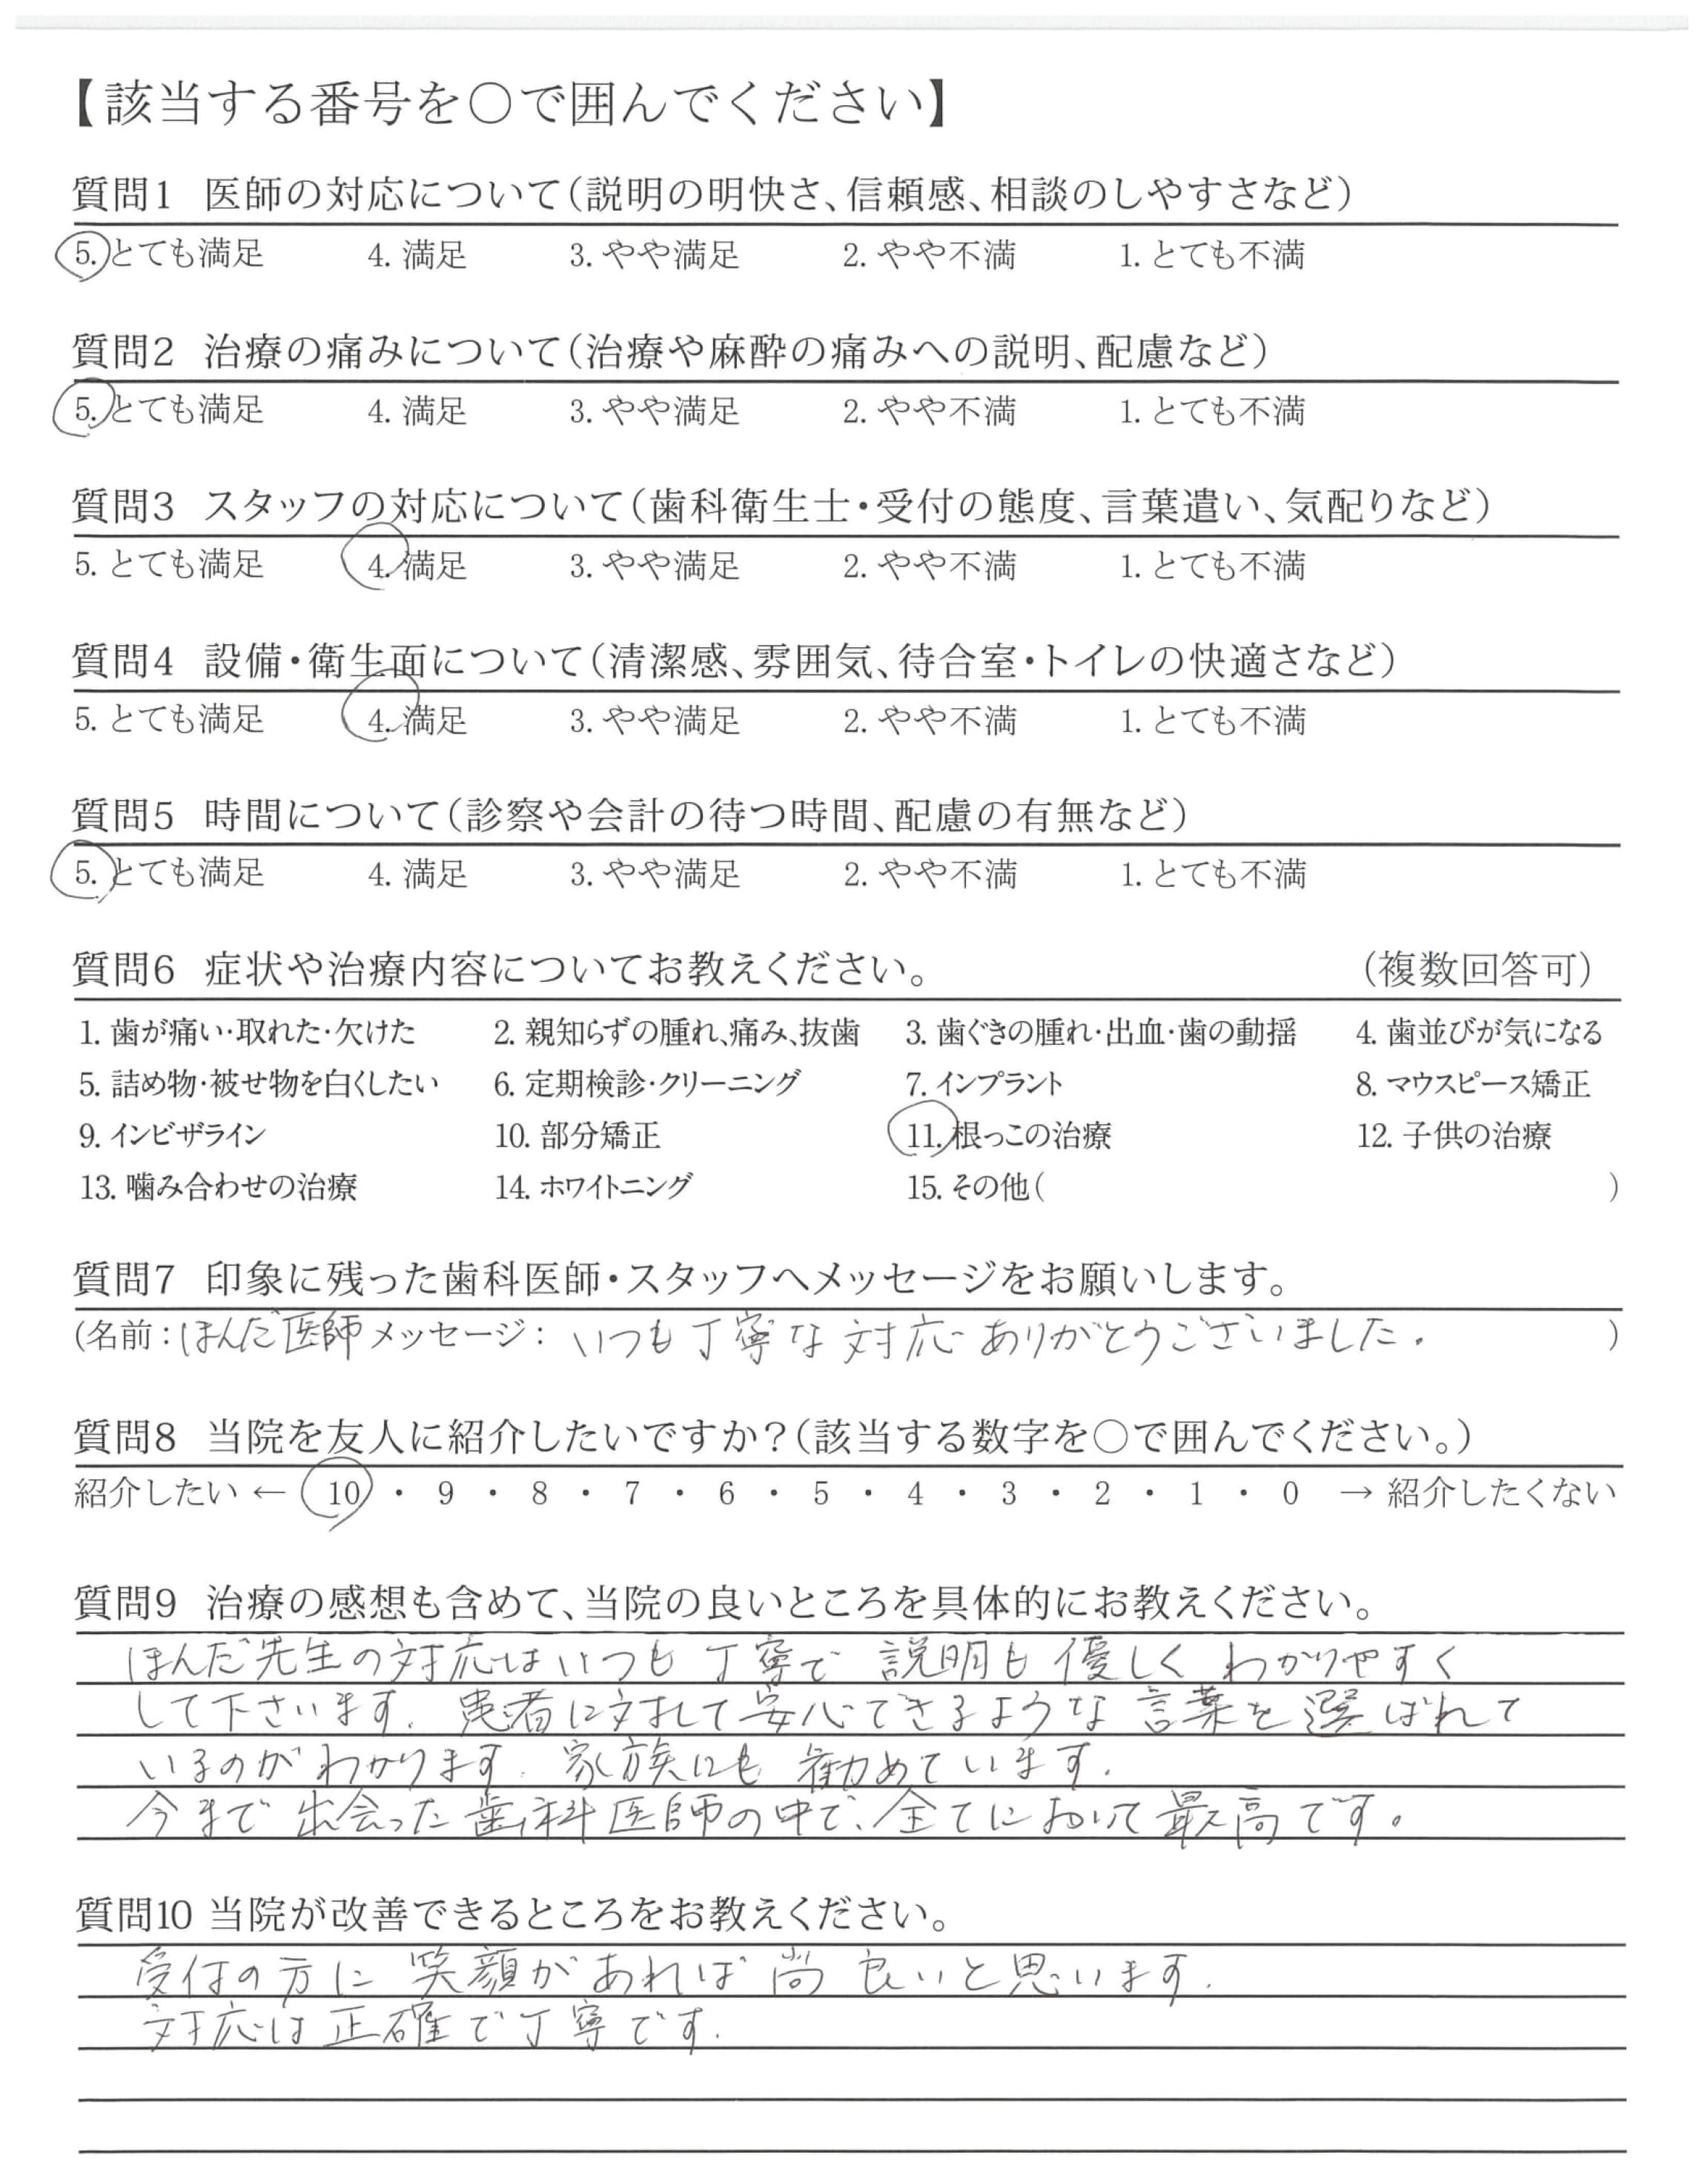 【該当する番号を○で囲んでください】
質問1 医師の対応について(説明の明快さ、信頼感、相談のしやすさなど)
5. とても満足 4. 満足 3. やや満足 2. やや不満 1. とても不満
質問2 治療の痛みについて(治療や麻酔の痛みへの説明、配慮など)
5. とても満足 4. 満足 3. やや満足 2. やや不満 1. とても不満
質問3 スタッフの対応について(歯科衛生士・受付の態度、言葉遣い、気配りなど)
5. とても満足 4. 満足 3. やや満足 2. やや不満 1. とても不満
質問4 設備・衛生面について(清潔感、雰囲気、待合室・トイレの快適さなど)
5. とても満足 4. 満足 3. やや満足 2. やや不満 1. とても不満
質問5 時間について(診察や会計の待つ時間、配慮の有無など)
5. とても満足 4. 満足 3. やや満足 2. やや不満 1. とても不満
質問6 症状や治療内容についてお教えください。 (複数回答可)
1. 歯が痛い・取れた・欠けた 2. 親知らずの腫れ、痛み、抜歯 3. 歯ぐきの腫れ・出血・歯の動揺 4. 歯並びが気になる
5. 詰め物・被せ物を白くしたい 6. 定期検診・クリーニング 7. インプラント 8. マウスピース矯正
9. インビザライン 10. 部分矯正 11. 根っこの治療 12. 子供の治療
13. 噛み合わせの治療 14. ホワイトニング 15. その他( )
質問7 印象に残った歯科医師・スタッフへメッセージをお願いします。
(名前：ほんだ医師 メッセージ： いつも丁寧な対応ありがとうございました。 )
質問8 当院を友人に紹介したいですか？(該当する数字を○で囲んでください。)
紹介したい ← 10 ・ 9 ・ 8 ・ 7 ・ 6 ・ 5 ・ 4 ・ 3 ・ 2 ・ 1 ・ 0 → 紹介したくない
質問9 治療の感想も含めて、当院の良いところを具体的にお教えください。
ほんだ先生の対応はいつも丁寧で説明も優しくわかりやすく
して下さいます。患者に対して安心できるような言葉を選ばれて
いるのがわかります。家族にも勧めています。
今まで出会った歯科医師の中で、全てにおいて最高です。
質問10 当院が改善できるところをお教えください。
受付の方に笑顔があれば尚良いと思います。
対応は正確で丁寧です。